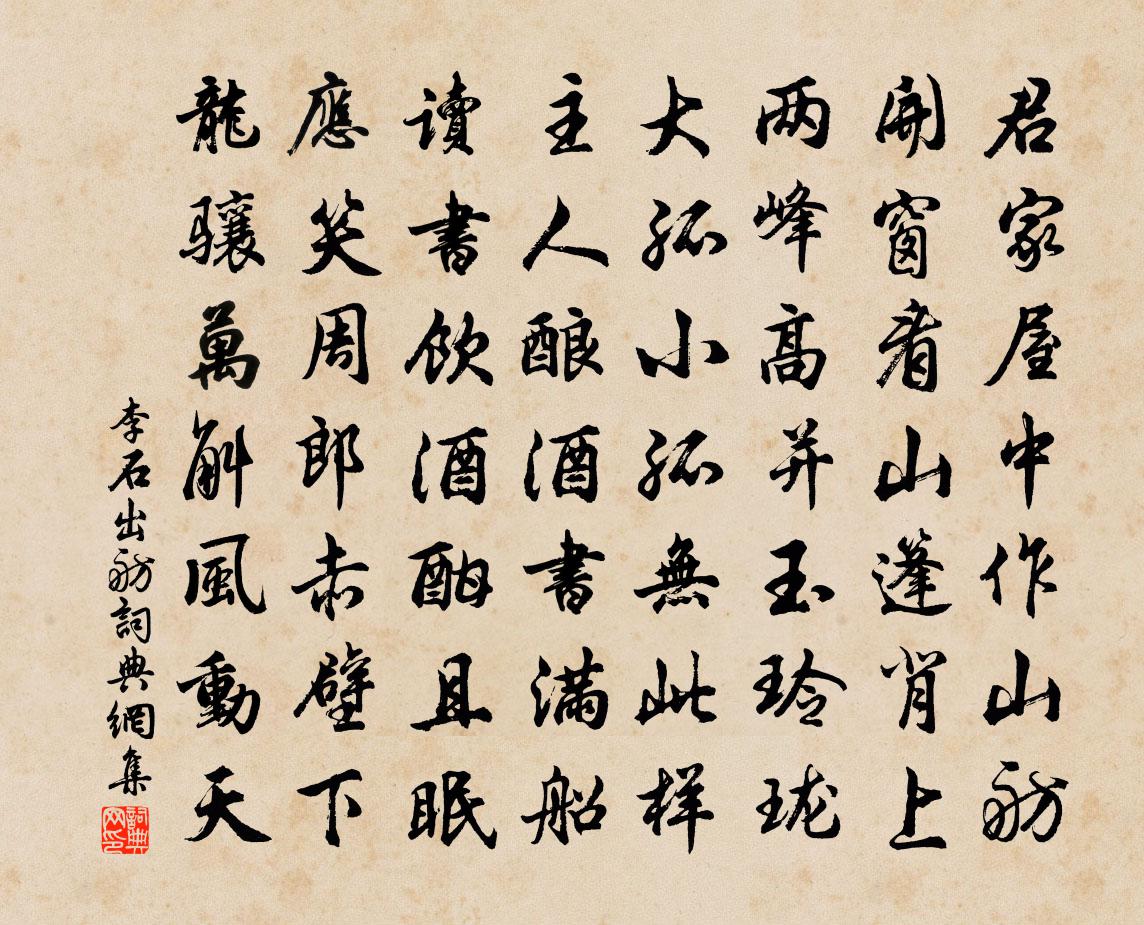 君家屋中作山舫
開窗看山蓬背上
两峰高并玉玲珑
大孤小孤無此样
主人酿酒書满船
讀書飲酒酣且眠
應笑周郎赤壁下
龍骧萬斛風動天
李石出舫詞典網集
詞典网印